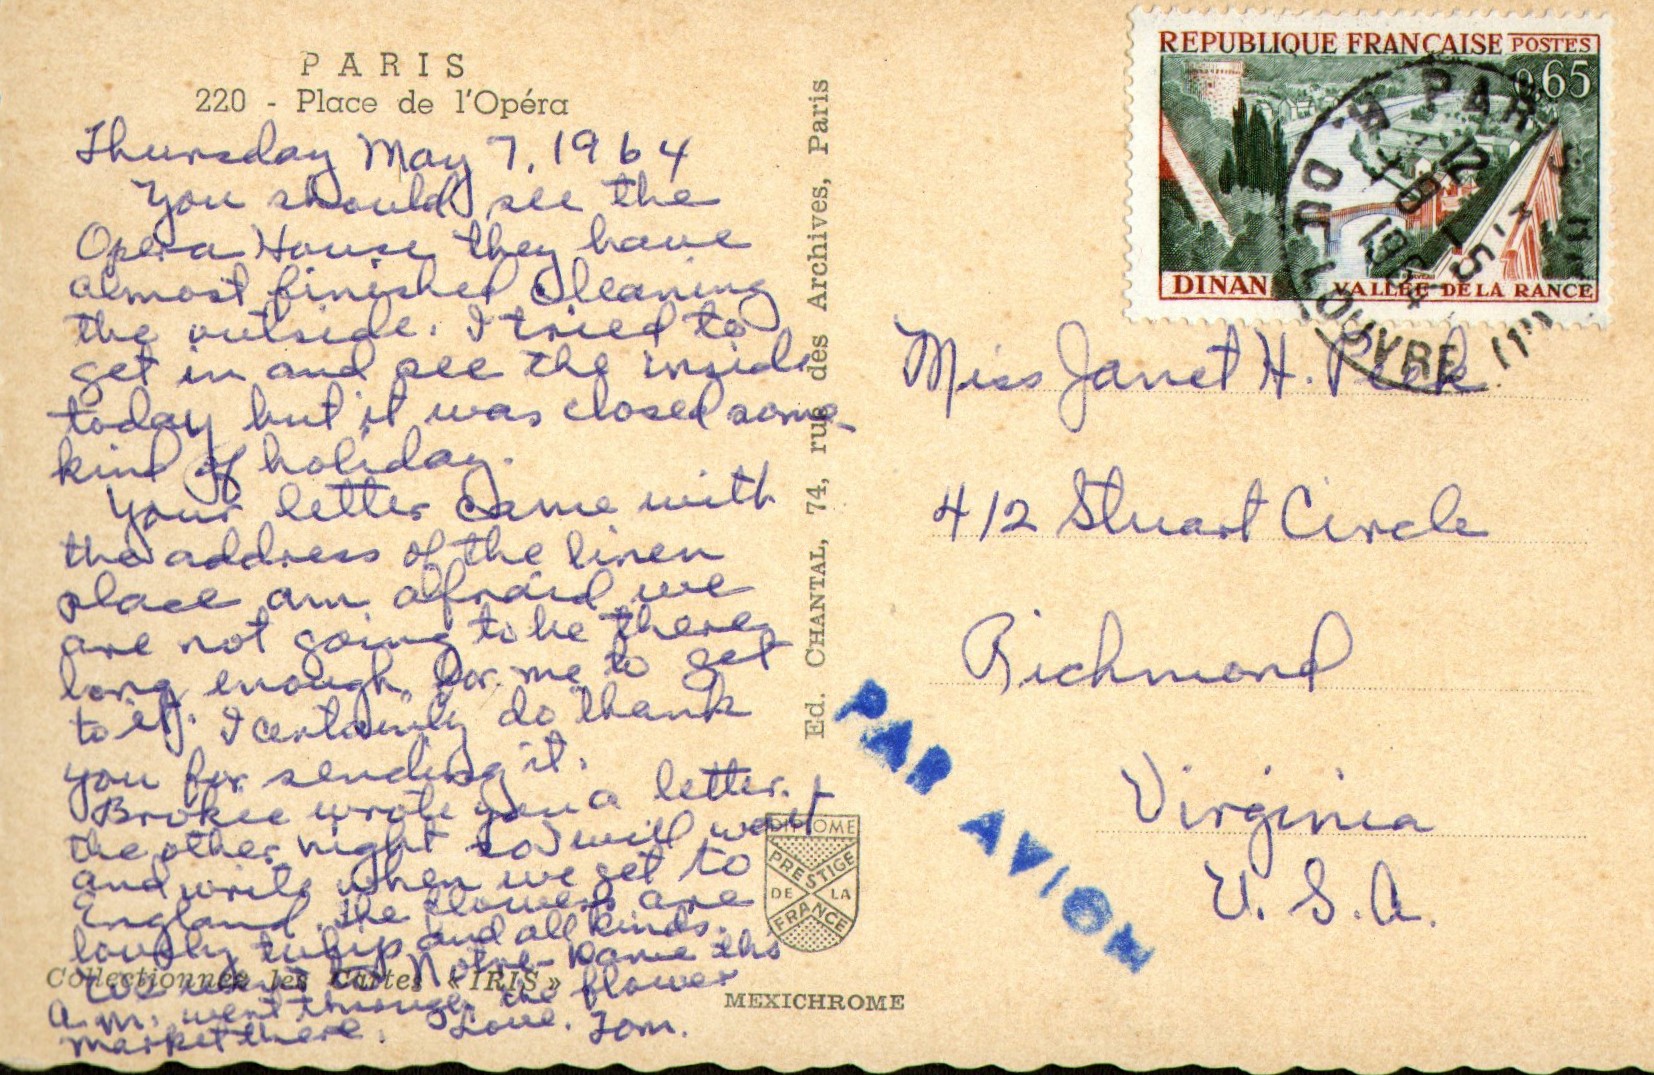 PARIS
220 - Place de l'Opéra
Thursday May 7, 1964
You should see the
Opera House they have
almost finished cleaning
the outside. I tried to
get in and see the inside
today but it was closed some
kind of holiday.
Your letter came with
the address of the linen
place am afraid we
are not going to be there
long enough for me to get
to it. I certainly do thank
you for sending it.
Brokee wrote you a letter
the other night so will wait
and write when we get to
England. The flowers are
lovely tulips and all kinds.
We went to Notre-Dame this
A.M. went through the flower
market there. Love. Tom.
Collectionnez les Cartes « IRIS »
Ed. CHANTAL, 74, rue des Archives, Paris
DIPLOME
PRESTIGE
DE LA
FRANCE
MEXICHROME
REPUBLIQUE FRANÇAISE POSTES
0,65
DINAN VALLÉE DE LA RANCE
PARIS
12
8 - 5
1964
R. DU LOUVRE (1er)
Miss Janet H. Peck
412 Stuart Circle
Richmond
Virginia
U.S.A.
PAR AVION